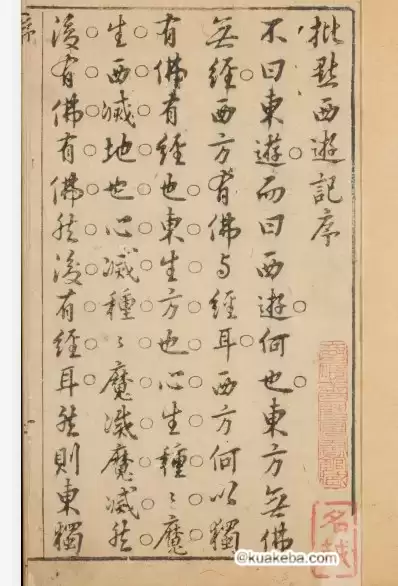 批點西遊記序
不曰東遊而曰西遊何也東方無佛
無經西方有佛与經耳西方何以獨
有佛有經也東生方也心生種〻魔
生西滅地也心滅種〻魔滅魔滅然
後有佛有佛然後有經耳然則東獨
@kuakeba.com